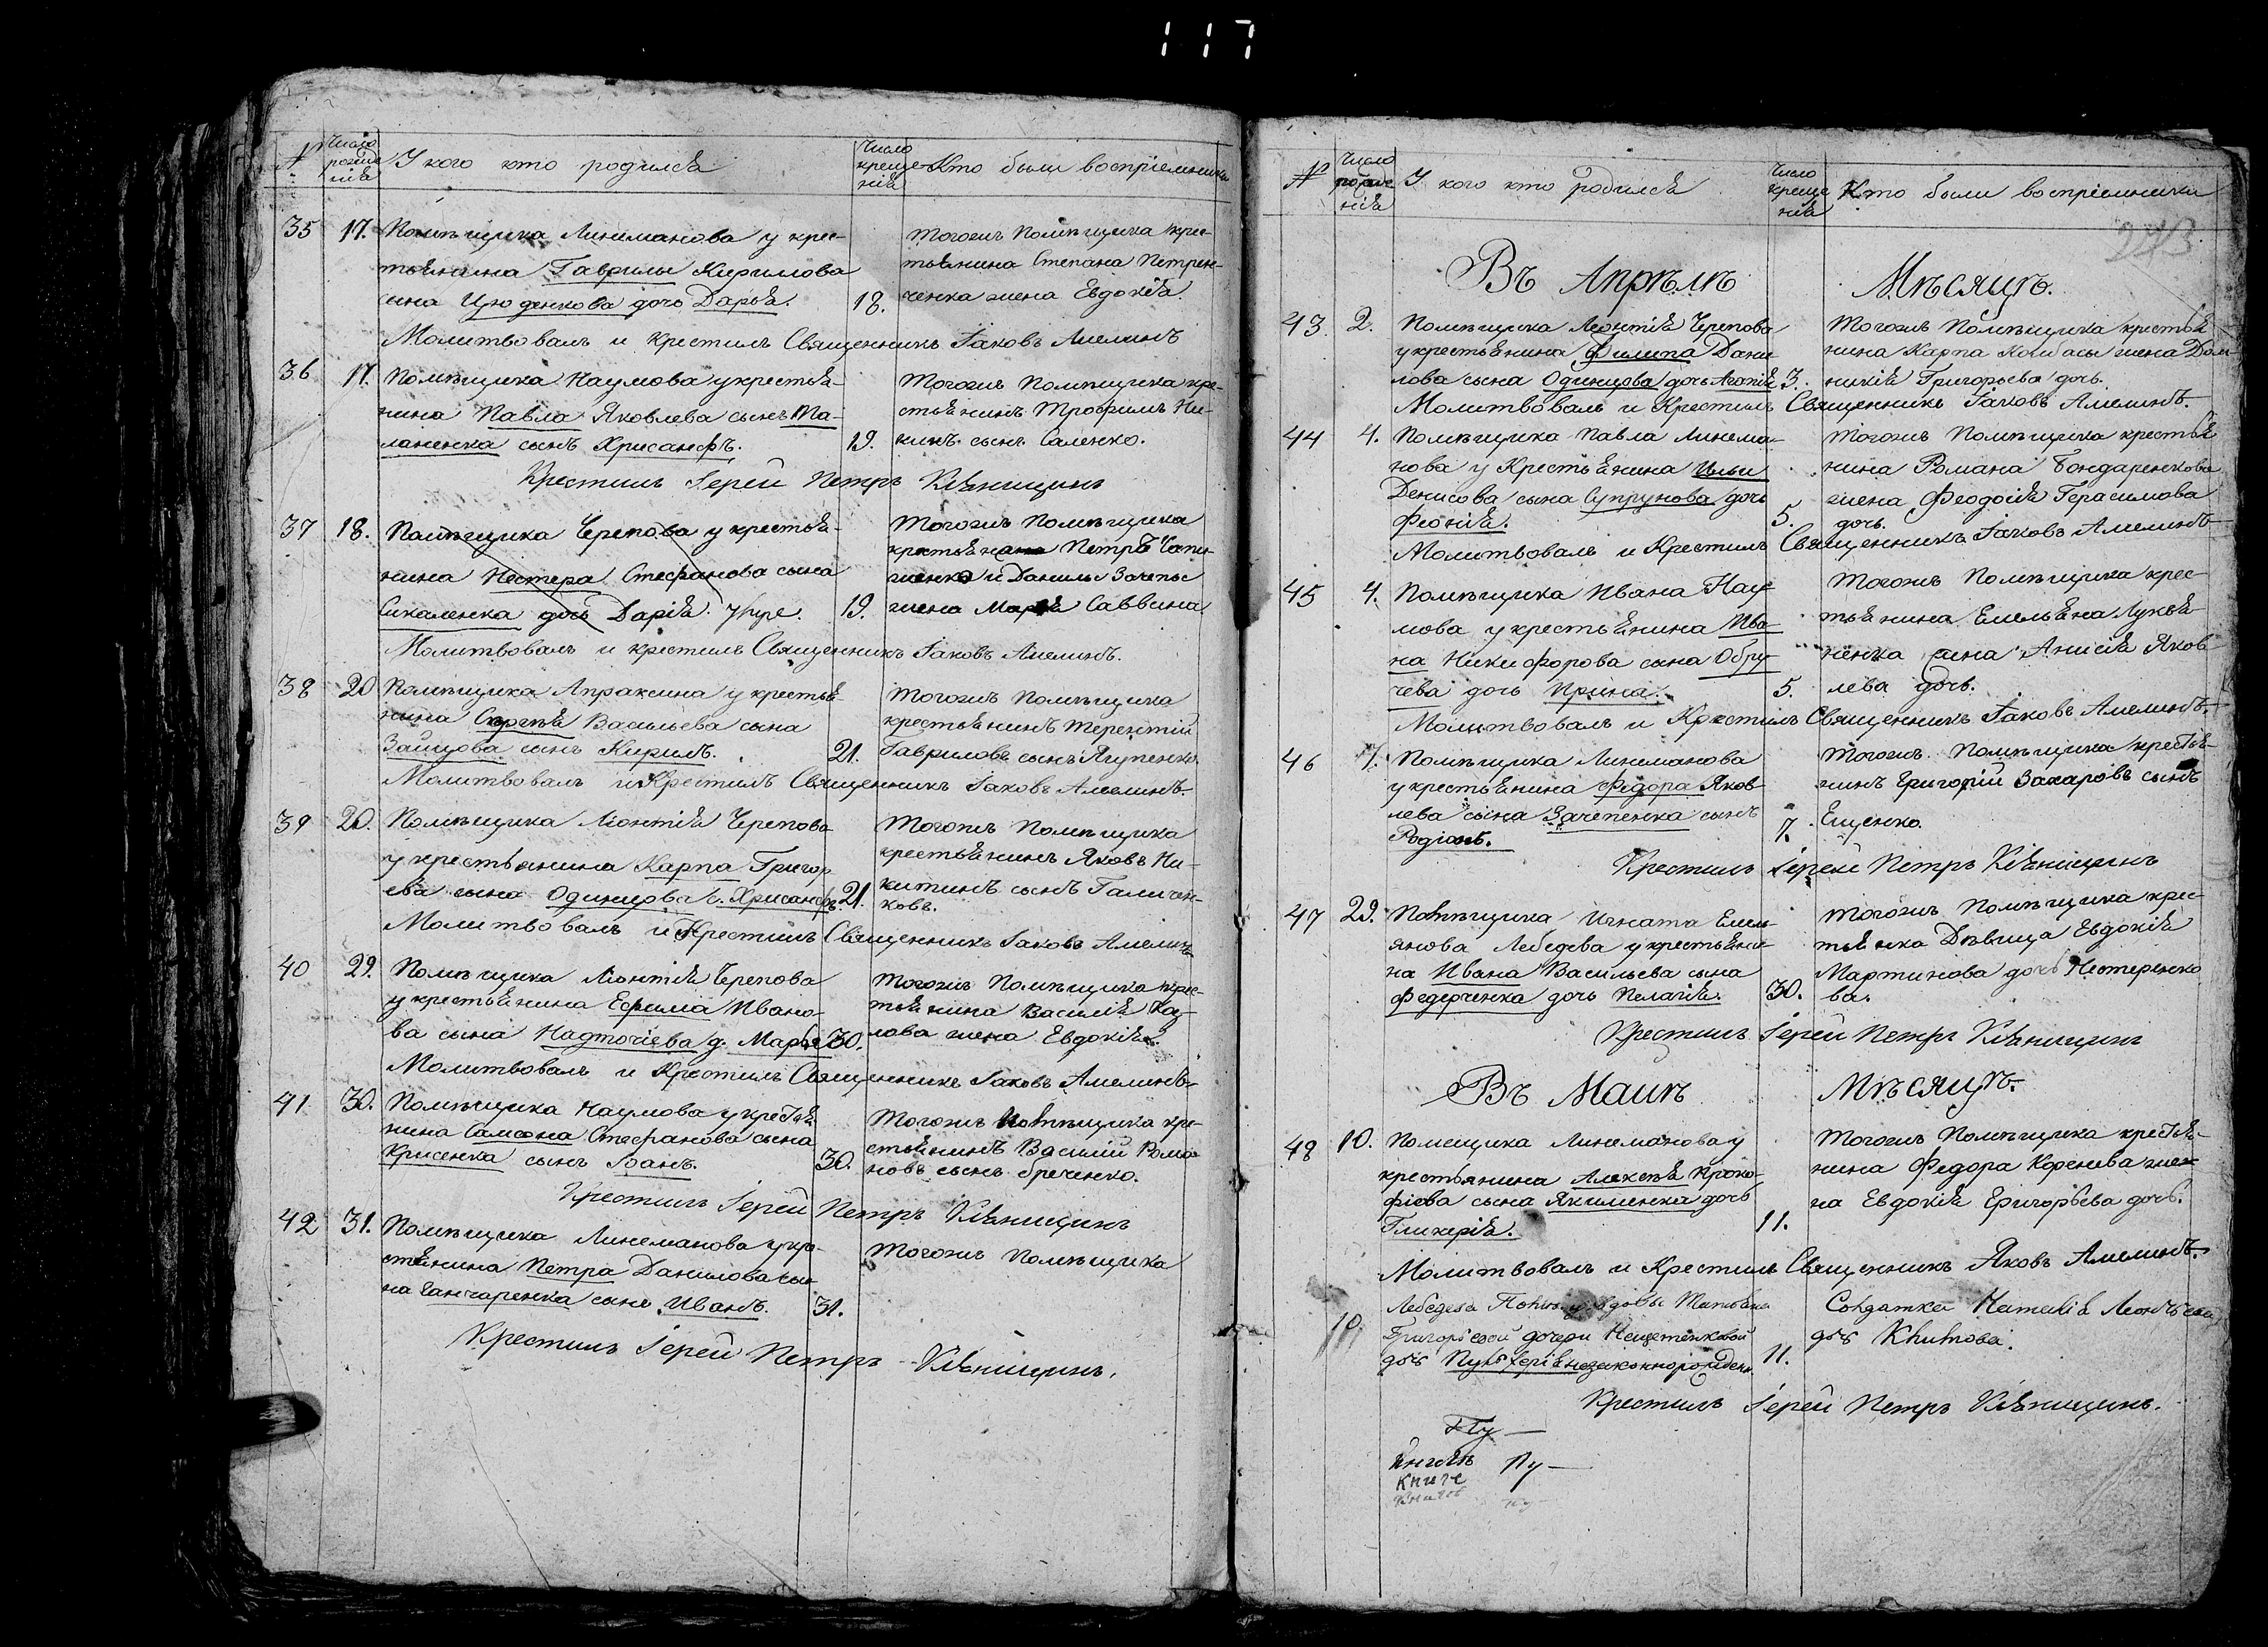 117
№ Число рожденія У кого кто родился Число крещенія Кто были воспріемники
35 17. Помѣщика Линеманова у крес-
тьянина Гаврилы Кирилова
сына Цюценкова дочь Дарья. 18.
Тогожъ Помѣщика крес-
тьянина Степана Петрен-
ченка жена Евдокія.
Молитвовалъ и крестилъ Священникъ Іаковъ Амелинъ
36 17. Помѣщика Наумова у крестья-
нина Павла Яковлева сынъ Ма-
лоненка сынъ Хрисанфъ. 19.
Тогожъ Помѣщика кре-
стьянинъ Трофимъ Ни-
кинъ сынъ Саленко.
Крестилъ Іерей Петръ Клѣнищинъ
37 18. Помѣщика Черепова у крестья-
нина Нестера Стефанова сына
Сикаленка дочь Дарія. 19.
Тогожъ Помѣщика
крестьянина Петръ
и Данилы Зачепы
жена Марія Саввина
Молитвовалъ и крестилъ Священникъ Іаковъ Амелинъ.
38 20 Помѣщика Апраксина у крестья-
нина Сергѣя Васильева сына
Зайцова сынъ Кирилъ. 21.
Тогожъ Помѣщика
крестьянинъ Терентій
Гавриловъ сынъ Ягупенко.
Молитвовалъ и Крестилъ Священникъ Іаковъ Амелинъ.
39 20. Помѣщика Леонтія Черепова
у крестьянина Карпа Григор
ева сына Одинцова с. Хрисанфъ. 21.
Тогожъ Помѣщика
крестьянинъ Яковъ Ни-
китинъ сынъ Галичен-
ковъ.
Молитвовалъ и Крестилъ Священникъ Іаковъ Амелинъ
40 29. Помѣщика Леонтія Черепова
у крестьянина Ефима Ивано-
ва сына Надточіева д. Марья 30.
Тогожъ Помѣщика крес-
тьянина Василія Каз-
лова жена Евдокія.
Молитвовалъ и Крестилъ Священникъ Іаковъ Амелинъ
41 30. Помѣщика Наумова у крестья
нина Самсона Стефанова сына
Крисенка сынъ Іоанъ. 30.
Тогожъ Помѣщика кре-
стьянинъ Василій Рома-
новъ сынъ Греченко.
Крестилъ Іерей Петръ Клѣнищинъ
42 31. Помѣщика Линеманова у кре-
стьянина Петра Данилова сы-
на Ганчаренка сынъ Иванъ. 31.
Тогожъ Помѣщика
Крестилъ Іерей Петръ Клѣнищинъ.
№ Число рожденія У кого кто родился Число крещенія Кто были воспріемники
243
Въ Апрѣлѣ Мѣсяцѣ.
43 2. Помѣщика Леонтія Черепова
у крестьянина Филипа Дани-
лова сына Одинцова дочь Агапія 3.
Тогожъ Помѣщика крестья
нина Карпа Колбасы жена Дом
никія Григорьева дочь.
Молитвовалъ и Крестилъ Священникъ Іаковъ Амелинъ.
44 4. Помѣщика Павла Линема-
нова у Крестьянина Ильи
Денисова сына Супрунова дочь
Феонія. 5.
Тогожъ Помѣщика крестья
нина Романа Бондаренкова
жена Феодосія Герасимова
дочь.
Молитвовалъ и Крестилъ Священникъ Іаковъ Амелинъ
45 4. Помѣщика Ивана Нау-
мова у крестьянина Ива-
на Никифорова сына Обру
чева дочь Ирина. 5.
Тогожъ Помѣщика крес-
тьянина Емельяна Лукья-
ненка жена Анисія Яков-
лева дочь.
Молитвовалъ и Крестилъ Священникъ Іаковъ Амелинъ.
46 7. Помѣщика Линеманова
у крестьянина Федора Яков-
лева сына Зачепенка сынъ
Родіонъ. 7.
Тогожъ Помѣщика крестья-
нинъ Григорій Захаровъ сынъ
Ещенко.
Крестилъ Іерей Петръ Клѣнищинъ
47 29. Помѣщика Игната Емель
янова Лебедева у крестьяни-
на Ивана Васильева сына
Федерченка дочь Пелагія. 30.
Тогожъ Помѣщика крес-
тьянка Дѣвица Евдокія
Мартинова дочь Нестеренко
ва.
Крестилъ Іерей Петръ Клѣнищинъ
Въ Маиѣ Мѣсяцѣ.
48 10. Помещика Линеманова у
крестьянина Алексѣя Проко-
фіева сына Якименка дочь
Гликерія. 11.
Тогожъ Помѣщика крестья-
нина Федора Коренева же-
на Евдокія Григорьева дочь.
Молитвовалъ и Крестилъ Священникъ Яковъ Амелинъ.
10 Лебедева Помѣщ. у вдовы Татьяны
Григорьевой дочери Нещетенковой
дочь Пульхерія незаконнорожден. 11.
Солдатка Наталія Леонтьева
дочь Хилкова.
Крестилъ Іерей Петръ Клѣнищинъ.
Пу—
Пу—
Книге